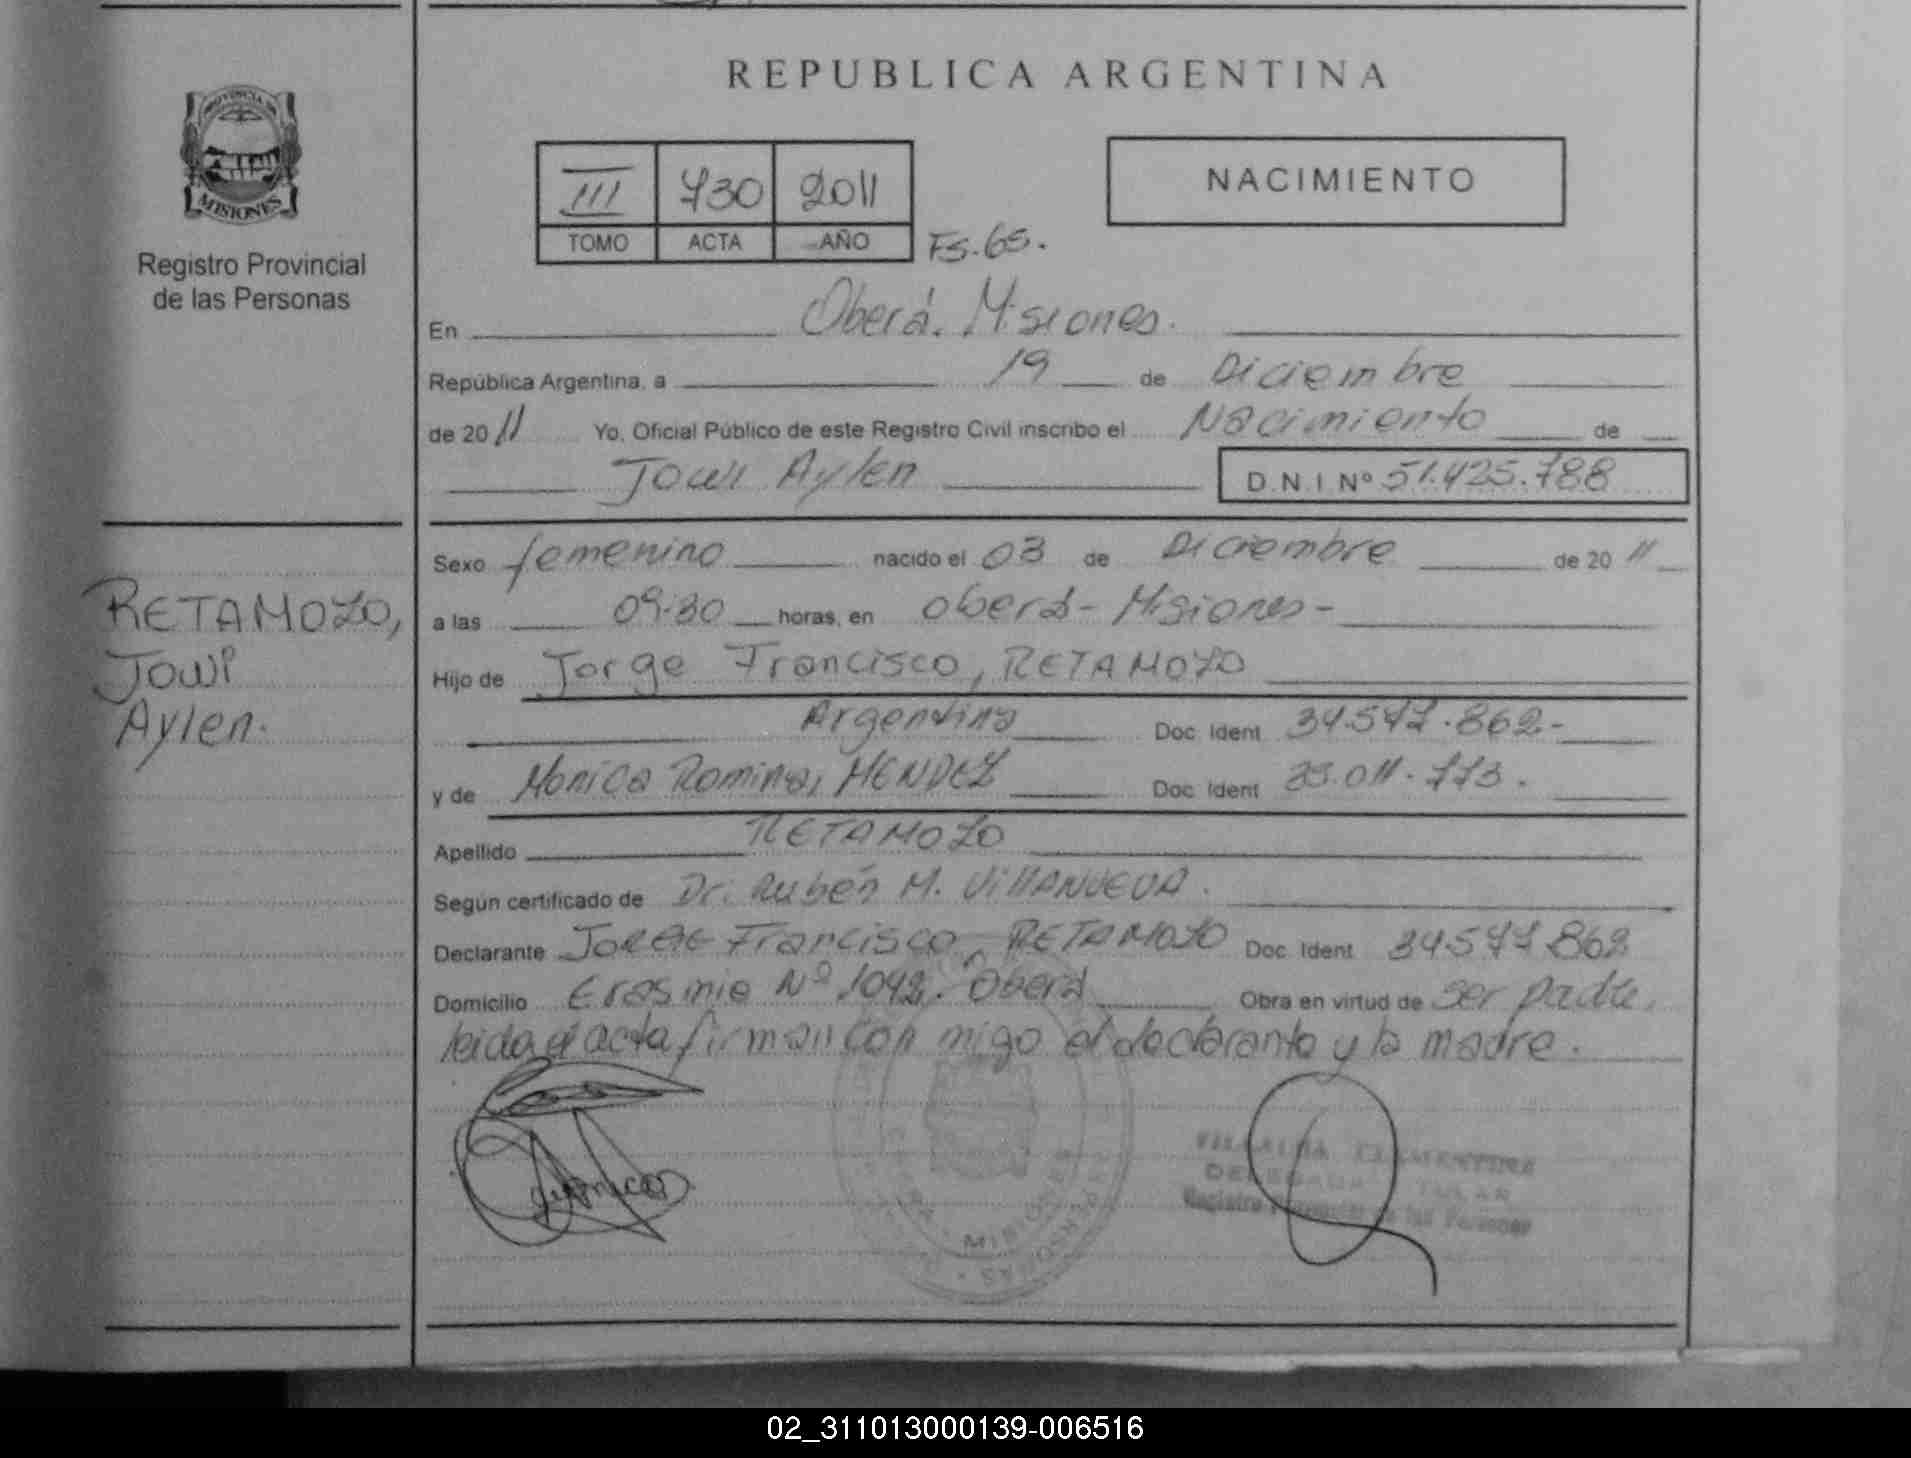 REPUBLICA ARGENTINA
PROVINCIA DE
MISIONES
Registro Provincial
de las Personas
III 730 2011
TOMO ACTA AÑO
Fs. 65.
NACIMIENTO
En Oberá. Misiones.
República Argentina, a 19 de Diciembre
de 2011 Yo, Oficial Público de este Registro Civil inscribo el Nacimiento de
Jowi Aylen D.N.I Nº 51.425.788
RETAMOZO,
Jowi
Aylen.
Sexo femenino nacido el 03 de Diciembre de 2011
a las 09.30 horas, en Oberá - Misiones -
Hijo de Jorge Francisco, RETAMOZO
Argentina Doc. Ident 34.577.862.-
y de Monica Romina, MENDEZ Doc. Ident .011.773.
Apellido RETAMOZO
Según certificado de Dr. Rubén M. VILLANUEVA.
Declarante JORGE Francisco, RETAMOZO Doc. Ident 34.577.862
Domicilio Erasmie Nº 1042. Oberá Obra en virtud de ser padre,
leida el acta firman con migo el declarante y la madre.
MISIONES
Registro Provincial de las Personas
02_311013000139-006516